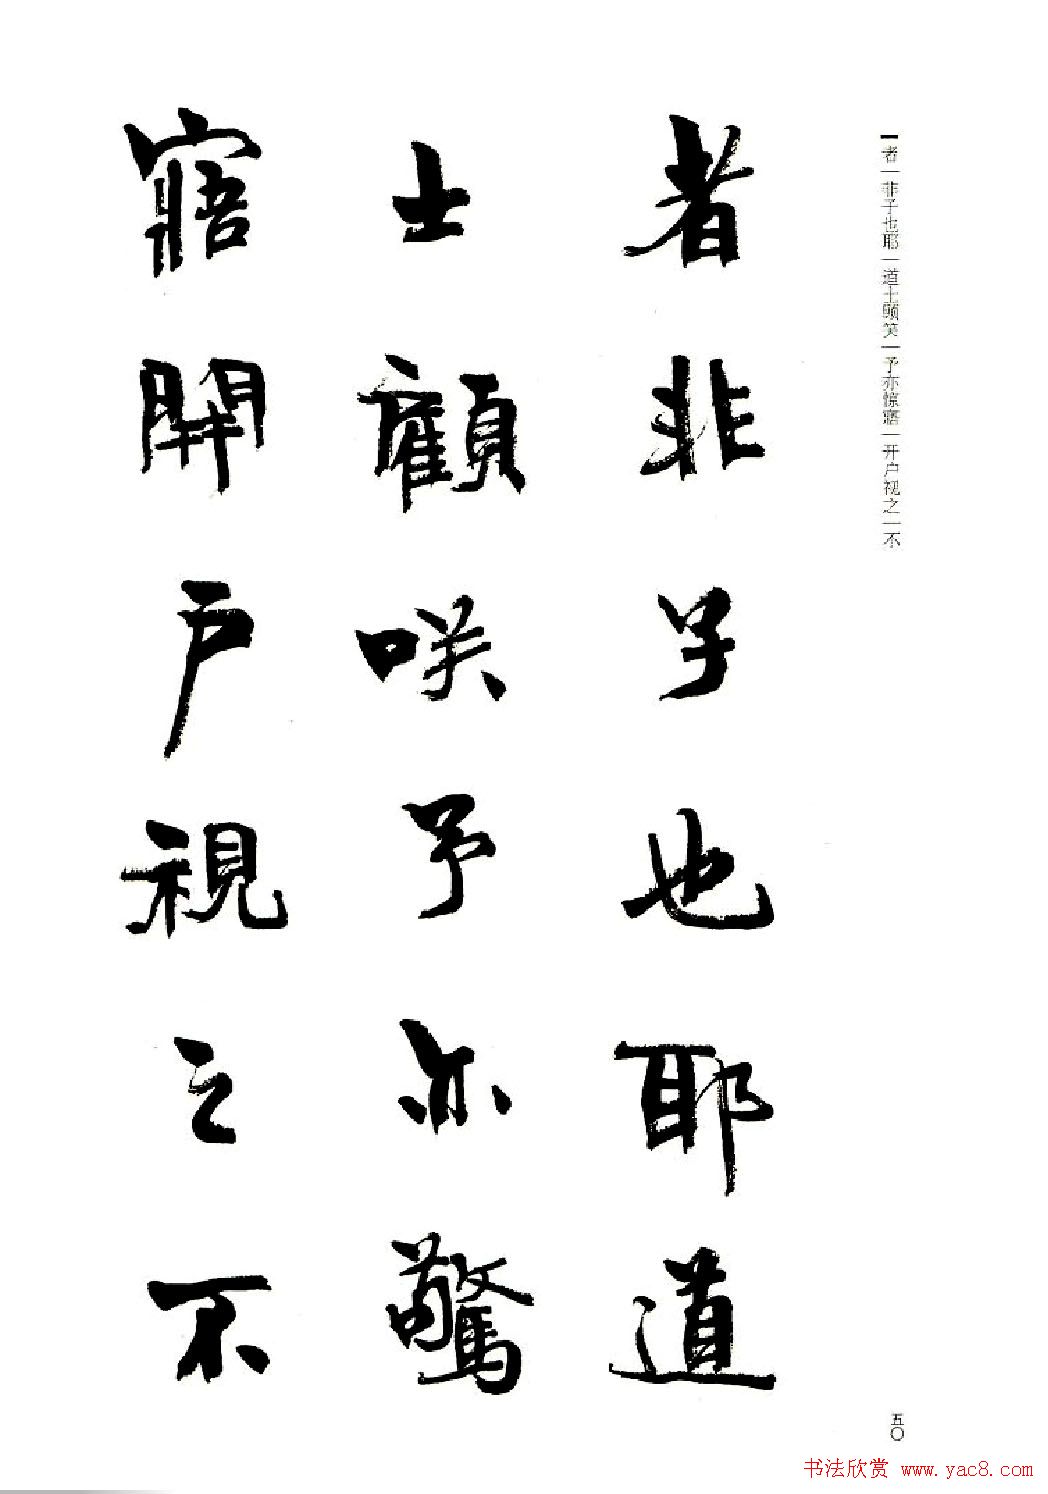 者一非子也耶一道士顾笑一予亦惊寤一开户视之一不
者非子也耶道
士顧咲予亦驚
寤開户視之不
五〇
书法欣赏 www.yac8.com